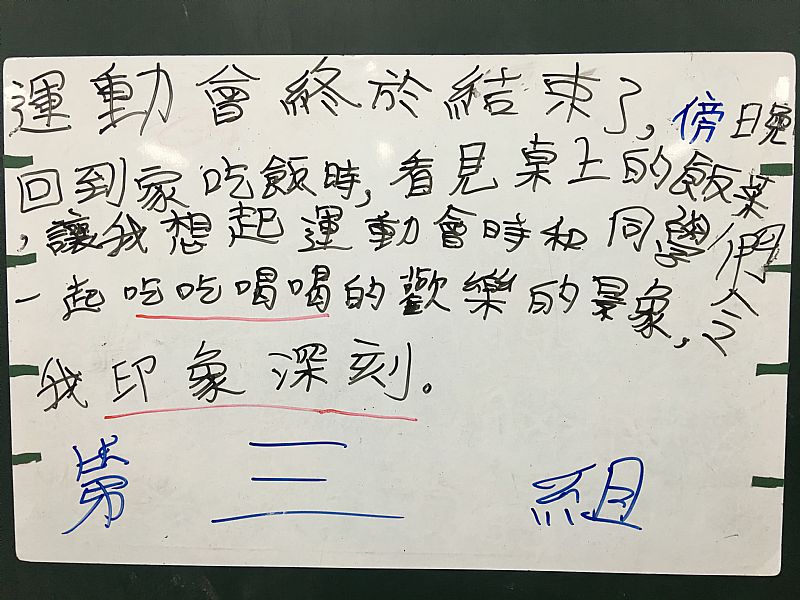 運動會終於結束了,傍晚
回到家吃飯時,看見桌上的飯菜
,讓我想起運動會時和同學們
一起吃吃喝喝的歡樂的景象,令
我印象深刻。
第三組